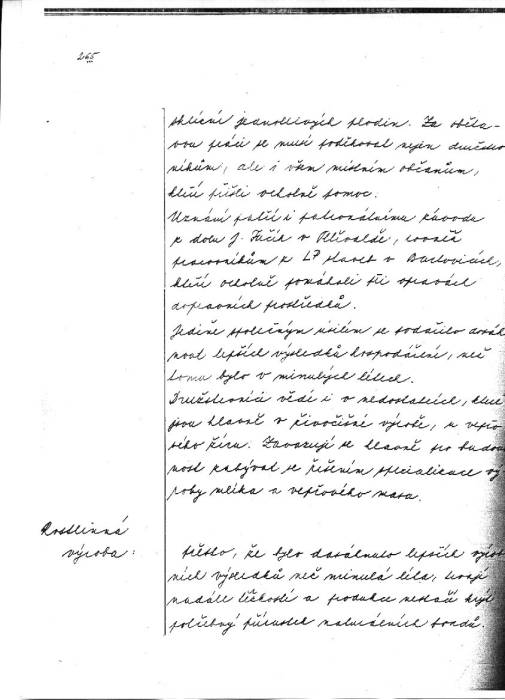 265
sklizni jednotlivých plodin. Za oběta-
vou práci se musí poděkovat nejen družste
níkům, ale i všem místním občanům,
kteří přišli ochotně pomoc.
Uznání patří i patronátnímu závodu
z dolu J. Fučík v Petřvaldě, rovněž
pracovníkům z LP staveb v Bartovicích,
kteří ochotně pomáhali při opravách
dopravních prostředků.
Jedině společným úsilím se podařilo dosáh
nout lepších výsledků hospodaření, než
tomu bylo v minulých létech.
Družstevníci vědí i o nedostatcích, které
jsou hlavně v živočišné výrobě, u vepřo
vého žíru. Zavazují se hlavně pro budou
nost zabývat se řešením specializace vý
roby mléka a vepřového masa.
Rostlinná
výroba:
Přesto, že bylo dosaženo lepších výrob
ních výsledků než minulá léta, trvají
nadále těžkosti a produkce nestačí krýt
potřebný přírůstek naturálních fondů.